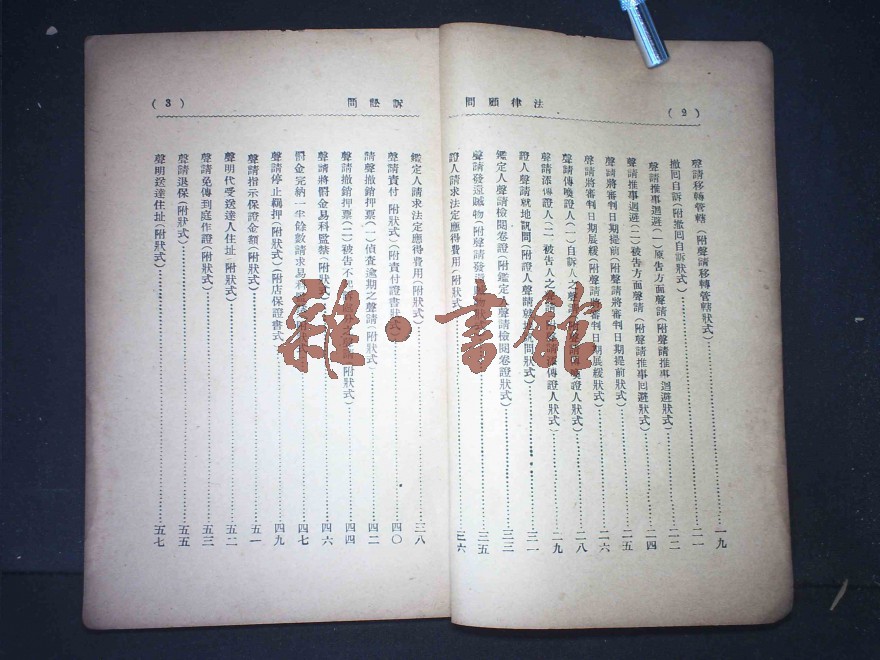 (2)
法律顧問
聲請移轉管轄(附聲請移轉管轄狀式)……一九
撤回自訴(附撤回自訴狀式)……二一
聲請推事迴避(一)原告方面聲請(附聲請推事迴避狀式)……二二
聲請推事迴避(二)被告方面聲請(附聲請推事回避狀式)……二四
聲請將審判日期提前(附聲請將審判日期提前狀式)……二五
聲請將審判日期展緩(附聲請將審判日期展緩狀式)……二六
聲請傳喚證人(一)自訴人之聲請(附聲請傳喚證人狀式)……二八
聲請添傳證人(二)被告人之聲請(附聲請添傳證人狀式)……二九
證人聲請就地訊問(附證人聲請就地訊問狀式)……三一
鑑定人聲請檢閱卷證(附鑑定人聲請檢閱卷證狀式)……三三
聲請發還贓物(附聲請發還贓物狀式)……三五
證人請求法定應得費用(附狀式)……三六
訴訟問
(3)
鑑定人請求法定應得費用(附狀式)……三八
聲請責付(附狀式)(附責付證書狀式)……四〇
請聲撤銷押票(一)偵查逾期之聲請(附狀式)……四二
聲請撤銷押票(二)被告不 之聲請(附狀式)……四四
聲請將罰金易科監禁(附狀式)……四六
罰金完納一半餘數請求易科 (附狀式)……四七
聲請停止羈押(附狀式)(附店保證書式)……四九
聲請指示保證金額(附狀式)……五一
聲明代受送達人住址(附狀式)……五二
聲請免傳到庭作證(附狀式)……五三
聲請退保(附狀式)……五五
聲明送達住址(附狀式)……五七
雜·書館